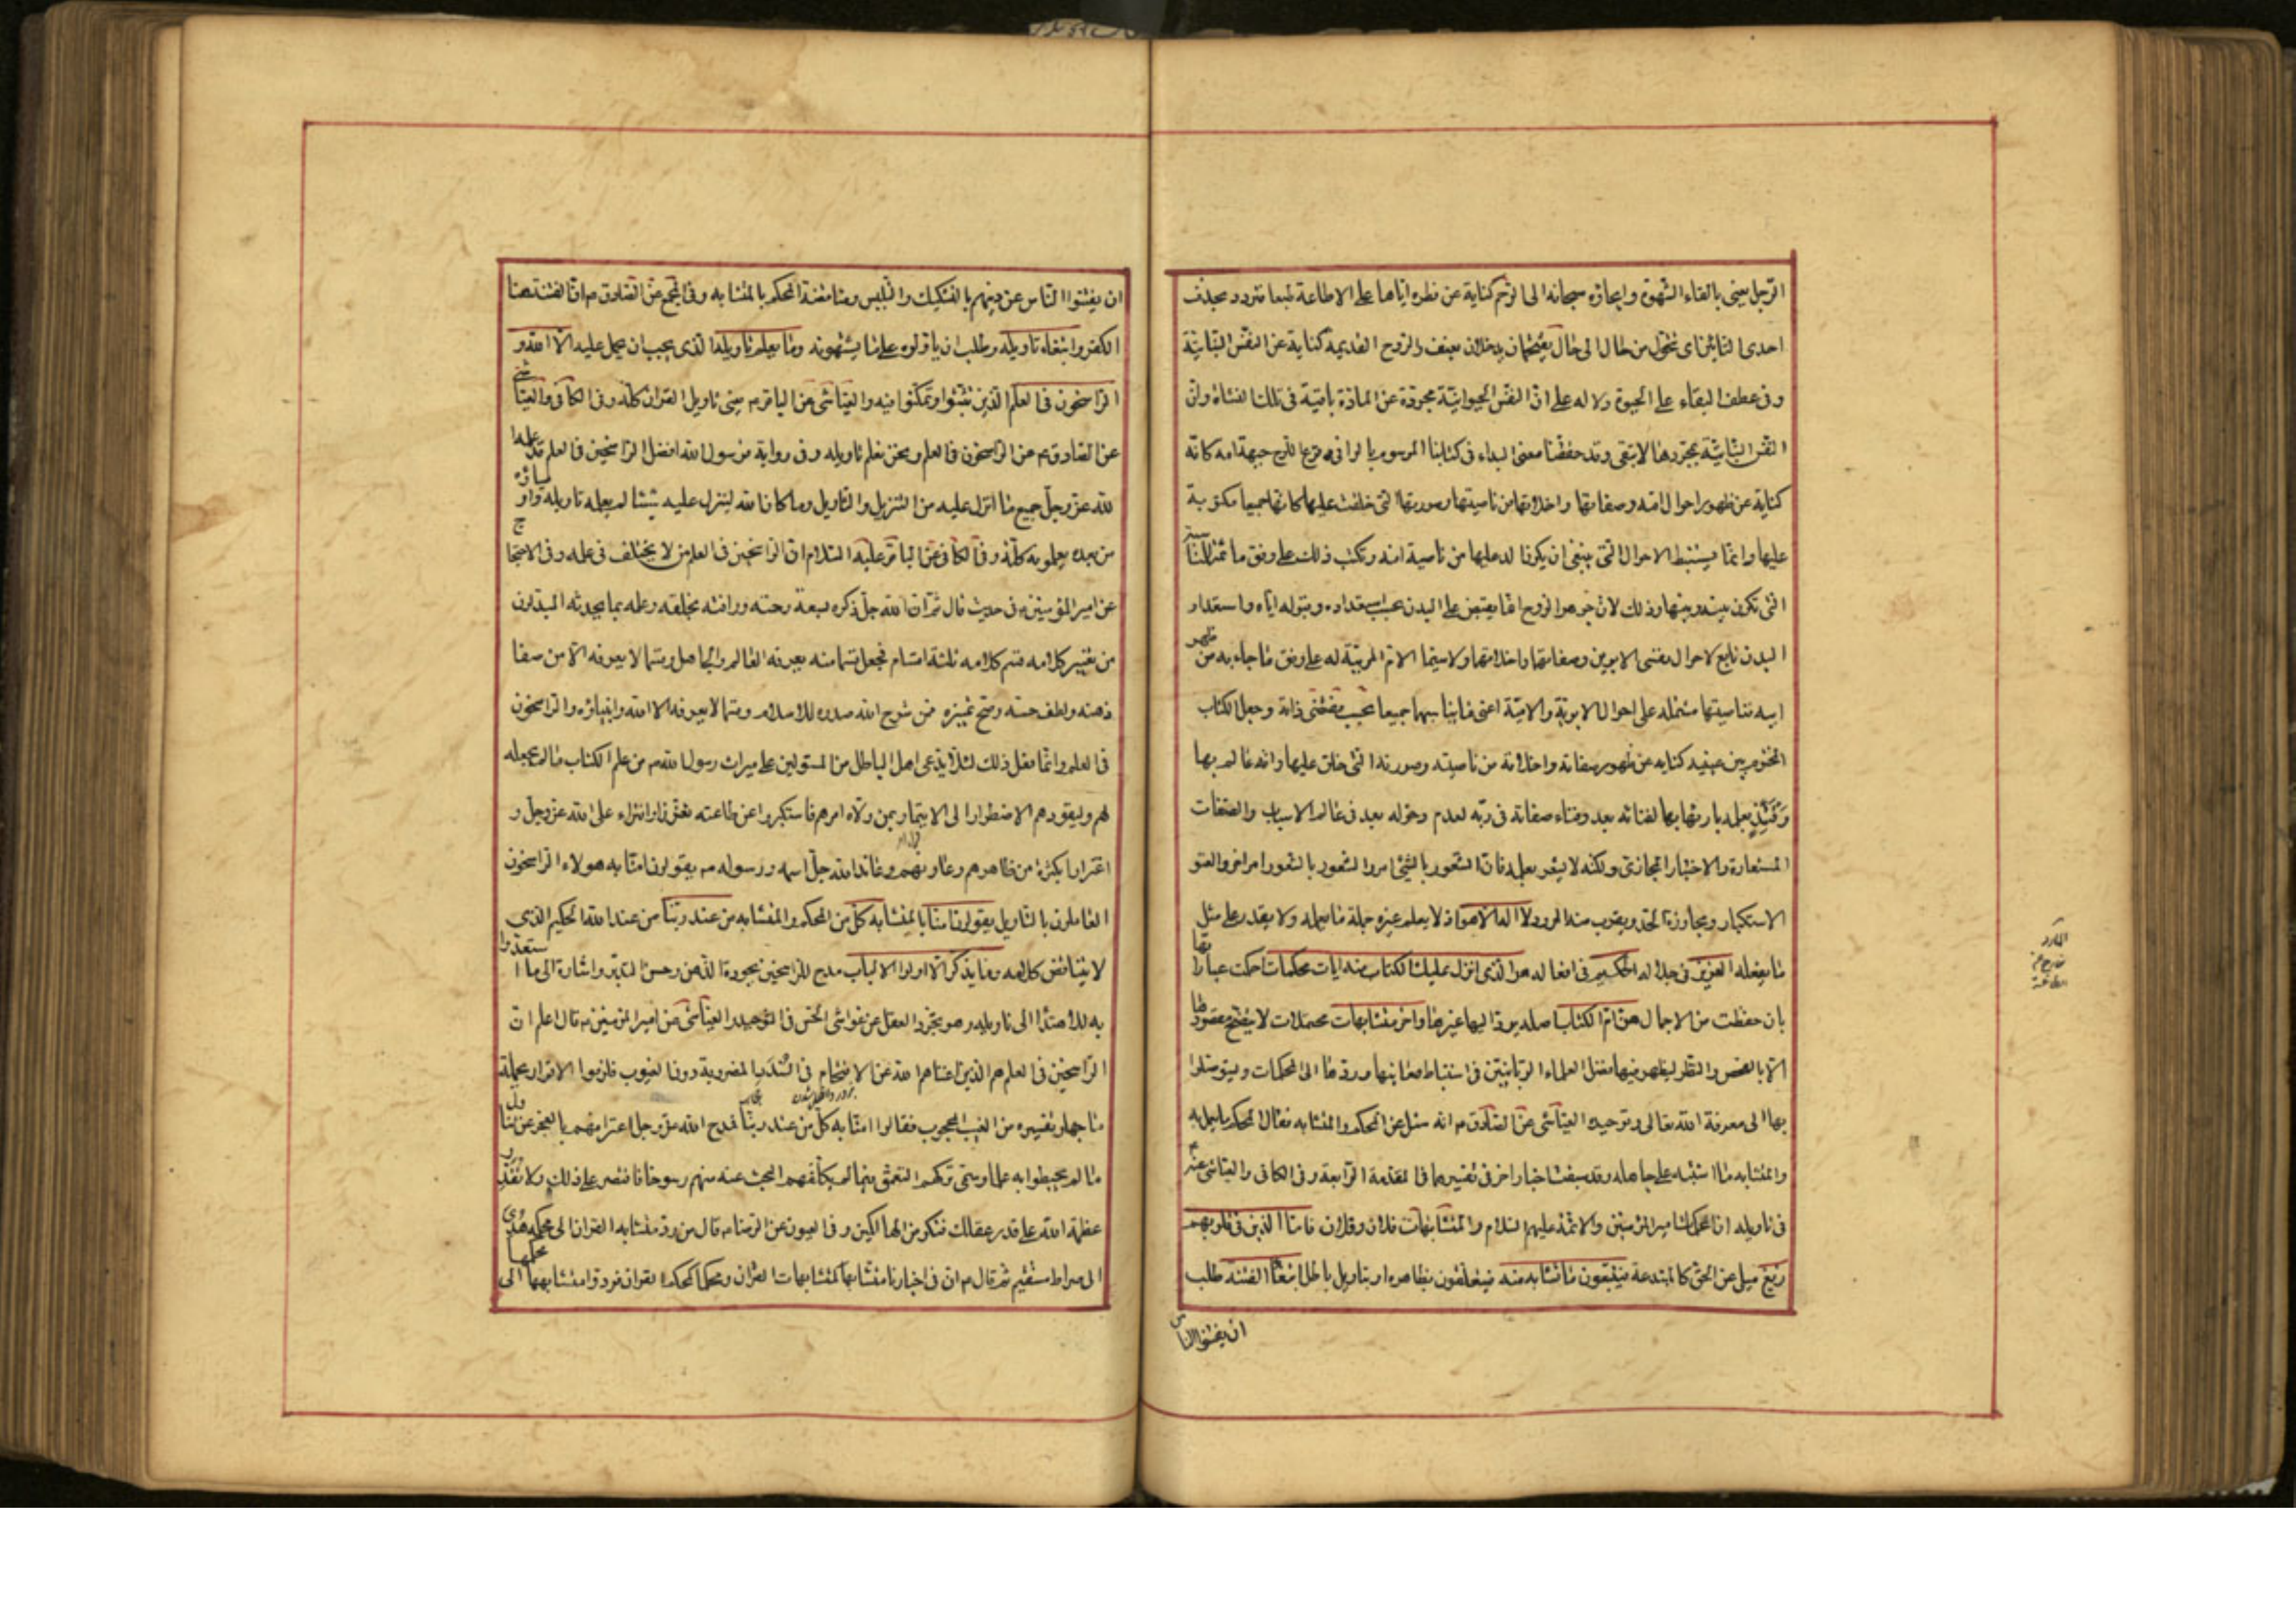 الرجل يعنى بالقاء الشهوة وايحاؤه سبحانه الى الرحم كناية عن فطره اياها على الاطاعة طبعا فتردد بحذف
احدى التائين اى تتحول من حال الى حال يقتحمان يدخلان بعنف والروح القديمة كناية عن النفس النباتية
وفى عطف البقاء على الحيوة دلالة على ان النفس الحيوانية مجردة عن المادة باقية فى تلك النشاة وان
النفس النباتية بمجردها لا تبقى وقد حققنا معنى البداء فى كتابنا الموسوم بالوافى وقرع اللوح جبهة امه كانه
كناية عن ظهور احوال امه وصفاتها واخلاقها من ناصيتها وصورتها التى خلقت عليها كانها جميعا مكتوبة
عليها وانما يستنبط الاحوال التى ينبغى ان يكون الولد عليها من ناصية امه ويكتب ذلك على وفق ما ثمة للمناسبة
التى تكون بينه وبينها وذلك لان جوهر الروح انما يفيض على البدن بحسب استعداده وقبوله اياه واستعداد
البدن تابع لاحوال نفسى الابوين وصفاتهما واخلاقهما ولا سيما الام المربية له على وفق ما جاء به من ظهر
ابيه فناصيتها مشتملة على احوال الابوية والامية اعنى ما يناسبهما جميعا بحسب مقتضى ذاته وجعل الكتاب
المختوم بين عينيه كناية عن ظهور صفاته واخلاقه من ناصيته وصورته التى خلق عليها وانه عالم بها
وقتئذ بعلم بارئها بها لفنائه بعد وفناء صفاته فى ربه لعدم دخوله بعد فى عالم الاسباب والصفات
المستعارة والاختيار المجازى ولكنه لا يشعر بعلمه فان الشعور بالشئ امر والشعور بالشعور امر اخر والعتو
الاستكبار ومجاوزة الحد ويقرب منه المرود لا اله الا هو اذ لا يعلم غيره جملة ما يعلمه ولا يقدر على مثل
ما يفعله العزيز فى جلاله الحكيم فى افعاله هو الذى انزل عليك الكتاب منه ايات محكمات احكمت عباراتها
بان حفظت من الاجمال هن ام الكتاب اصله يرد اليها غيرها واخر متشابهات محتملات لا يتضح مقصودها
الا بالفحص والنظر ليظهر فيها فضل العلماء الربانيين فى استنباط معانيها وردها الى المحكمات وليتوصلوا
بها الى معرفة الله تعالى وتوحيده العياشى عن الصادق م انه سئل عن المحكم والمتشابه فقال المحكم ما يعمل به
والمتشابه ما اشتبه على جاهله وقد سبقت اخبار اخر فى تفسيرهما فى المقدمة الرابعة وفى الكافى والعياشى عنه
فى تاويله ان المحكمات امير المؤمنين والائمة عليهم السلام والمتشابهات فلان وفلان فاما الذين فى قلوبهم
زيغ ميل عن الحق كالمبتدعة فيتبعون ما تشابه منه فيتعلقون بظاهره او بتاويل باطل ابتغاء الفتنة طلب
ان يفتنوا الناس
المرد
ان يفتنوا الناس عن دينهم بالتشكيك والتلبيس ومناقضة المحكم بالمتشابه وفى المجمع عن الصادق م ان الفتنة هنا
الكفر وابتغاء تاويله وطلب ان ياولوه على ما يشتهونه وما يعلم تاويله الذى يجب ان يحمل عليه الا الله و
الراسخون فى العلم الذين تثبتوا وتمكنوا فيه والعياشى عن الباقر م يعنى تاويل القران كله وفى الكافى والعياشى
عن الصادق م نحن الراسخون فى العلم ونحن نعلم تاويله وفى رواية فرسول الله افضل الراسخين فى العلم قد علمه
الله عز وجل جميع ما انزل عليه من التنزيل والتاويل وما كان الله لينزل عليه شيئا لم يعلمه تاويله واوصياؤه
من بعده يعلمونه كله وفى الكافى عن الباقر عليه السلام ان الراسخين فى العلم من لا يختلف فى علمه وفى الاحتجاج
عن امير المؤمنين م فى حديث قال ثم ان الله جل ذكره لسعة رحمته ورافته بخلقه وعلمه بما يحدثه المبدلون
من تغيير كلامه قسم كلامه ثلثة اقسام فجعل قسما منه يعرفه العالم والجاهل وقسما لا يعرفه الا من صفا
ذهنه ولطف حسه وصح تمييزه ممن شرح الله صدره للاسلام وقسما لا يعرفه الا الله وانبياؤه والراسخون
فى العلم وانما فعل ذلك لئلا يدعى اهل الباطل من المستولين على ميراث رسول الله م من علم الكتاب ما لم يجعله
لهم وليقودهم الاضطرار الى الايتمار بمن ولاه امرهم فاستكبروا عن طاعته تعززا وافتراء على الله عز وجل و
اغترارا بكثرة من ظاهرهم وعاونهم وعاند الله جل اسمه ورسوله م يقولون امنا به هولاء الراسخون
العاملون بالتاويل يقولون امنا بالمتشابه كل من المحكم والمتشابه من عند ربنا من عند الله الحكيم الذى
لا يتناقض كلامه وما يذكر الا اولوا الالباب مدح للراسخين بجودة الذهن وحسن التدبر واشارة الى ما استعدوا
به للاهتداء الى تاويله وهو تجرد العقل عن غواشى الحس فى التوحيد والعياشى عن امير المؤمنين م قال اعلم ان
الراسخين فى العلم هم الذين اغناهم الله عن الاقتحام فى السدد المضروبة دون الغيوب فلزموا الاقرار بجملة
ما جهلوا تفسيره من الغيب المحجوب فقالوا امنا به كل من عند ربنا فمدح الله عز وجل اعترافهم بالعجز عن تناول
ما لم يحيطوا به علما وسمى تركهم التعمق فيما لم يكلفهم البحث عنه منهم رسوخا فاقتصر على ذلك ولا تقدر
عظمة الله على قدر عقلك فتكون من الهالكين وفى العيون عن الرضا م قال من رد متشابه القران الى محكمه هدى
الى صراط مستقيم ثم قال م ان فى اخبارنا متشابها كمتشابهات القران ومحكما كمحكم القران فردوا متشابهها الى محكمها